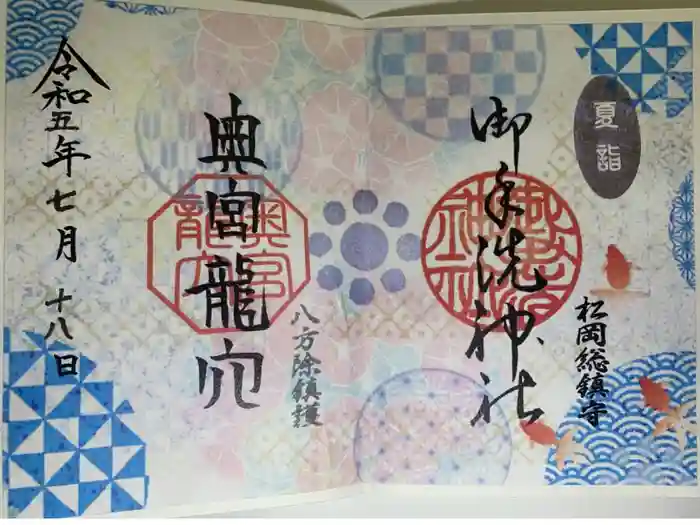 夏詣
松岡総鎮守
御手洗神社
八方除鎮護
奥宮龍穴
令和五年七月十八日